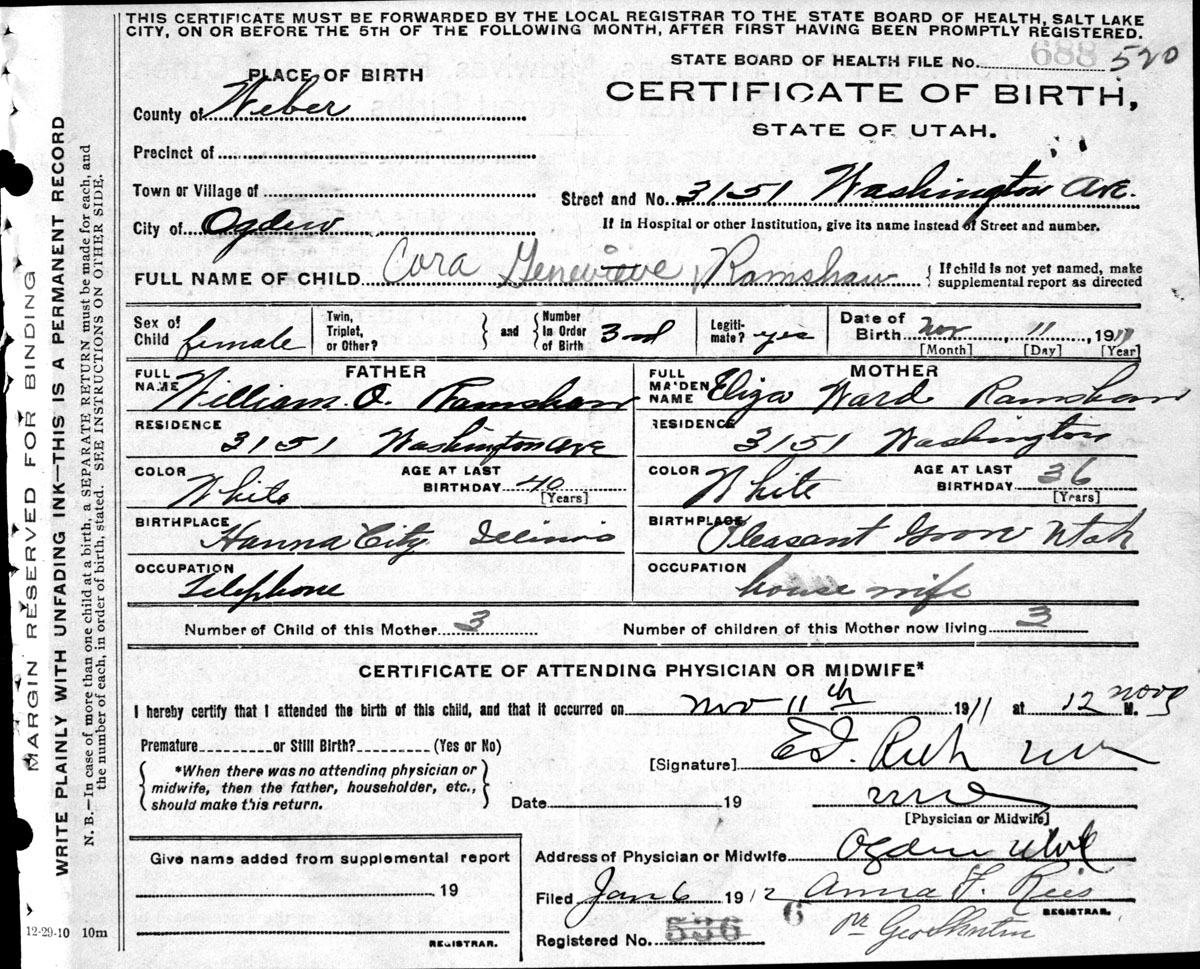 THIS CERTIFICATE MUST BE FORWARDED BY THE LOCAL REGISTRAR TO THE STATE BOARD OF HEALTH, SALT LAKE
CITY, ON OR BEFORE THE 5TH OF THE FOLLOWING MONTH, AFTER FIRST HAVING BEEN PROMPTLY REGISTERED.
STATE BOARD OF HEALTH FILE No. 688 520
PLACE OF BIRTH
CERTIFICATE OF BIRTH,
County of Weber
STATE OF UTAH.
Precinct of
Town or Village of
Street and No. 3151 Washington Ave.
City of Ogden
If in Hospital or other Institution, give its name instead of Street and number.
FULL NAME OF CHILD Cora Genevieve Ramshaw { If child is not yet named, make
supplemental report as directed
Sex of Child female
Twin, Triplet, or Other? } and { Number in Order of Birth 3rd
Legiti-mate? yes
Date of Birth Nov, 11, 1911
[Month] [Day] [Year]
FATHER
FULL NAME William O. Ramshaw
MOTHER
FULL MAIDEN NAME Eliza Ward Ramshaw
RESIDENCE 3151 Washington Ave
RESIDENCE 3151 Washington
COLOR White AGE AT LAST BIRTHDAY 40 [Years]
COLOR White AGE AT LAST BIRTHDAY 36 [Years]
BIRTHPLACE Hanna City Illinois
BIRTHPLACE Pleasant Grove Utah
OCCUPATION Telephone
OCCUPATION house wife
Number of Child of this Mother 3 Number of children of this Mother now living 3
CERTIFICATE OF ATTENDING PHYSICIAN OR MIDWIFE*
I hereby certify that I attended the birth of this child, and that it occurred on Nov 11th 1911 at 12 noon M.
Premature or Still Birth? (Yes or No)
[Signature] E.I. Rich MD
{ *When there was no attending physician or
midwife, then the father, householder, etc.,
should make this return. }
Date 19
[Physician or Midwife]
Give name added from supplemental report
19
REGISTRAR.
Address of Physician or Midwife Ogden Utah
Filed Jan 6 1912 Anna F. Reis
REGISTRAR.
Registered No. 536 6
MARGIN RESERVED FOR BINDING
WRITE PLAINLY WITH UNFADING INK—THIS IS A PERMANENT RECORD
N. B.—In case of more than one child at a birth, a SEPARATE RETURN must be made for each, and
the number of each, in order of birth, stated. SEE INSTRUCTIONS ON OTHER SIDE.
12-29-10 10m